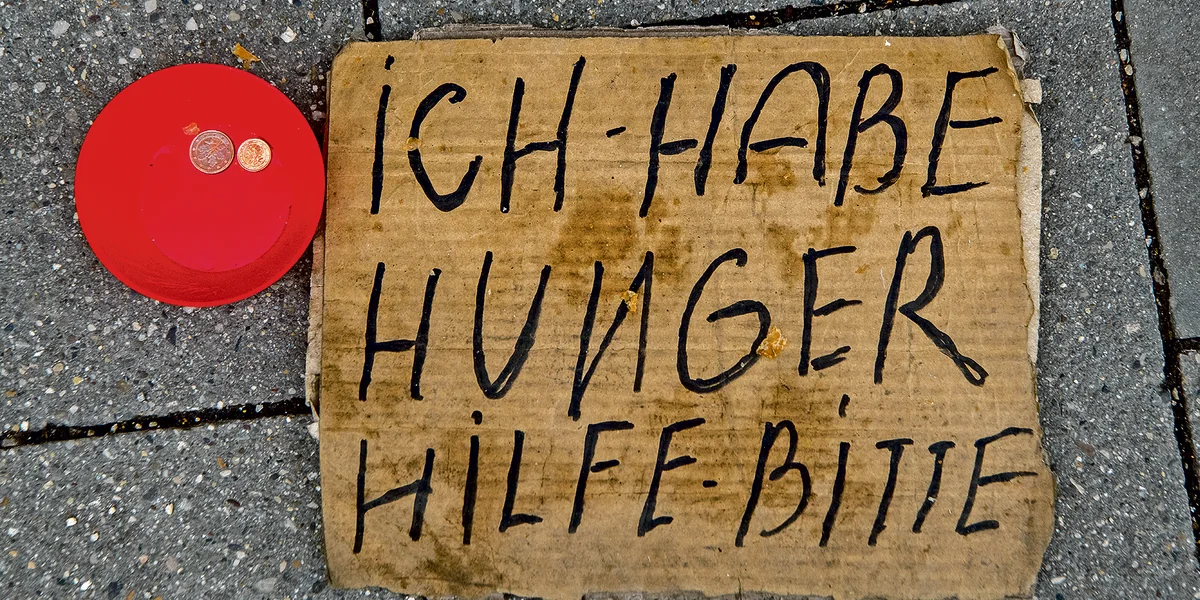 iCH-HABE
HUNGER
HiLFE-BiTTE